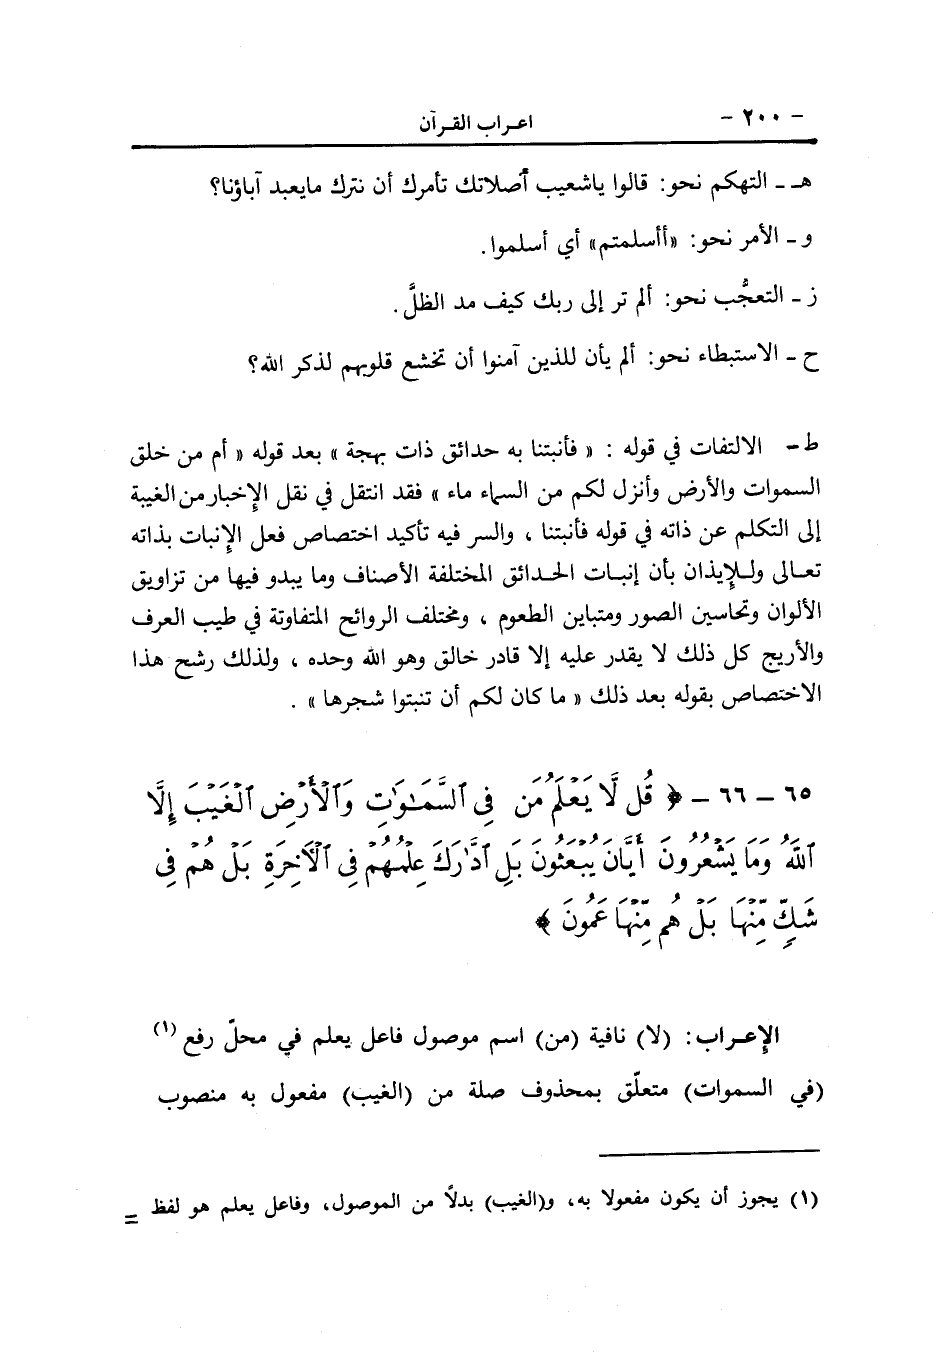 - ٢٠٠ - اعـراب القـرآن
هـ - التهكم نحو: قالوا ياشعيب أصلاتك تأمرك أن نترك مايعبد آباؤنا؟
و - الأمر نحو: «أأسلمتم» أي أسلموا.
ز - التعجُّب نحو: ألم تر إلى ربك كيف مد الظلَّ.
ح - الاستبطاء نحو: ألم يأن للذين آمنوا أن تخشع قلوبهم لذكر الله؟
ط - الالتفات في قوله : « فأنبتنا به حدائق ذات بهجة » بعد قوله « أم من خلق
السموات والأرض وأنزل لكم من السماء ماء » فقد انتقل في نقل الإخبار من الغيبة
إلى التكلم عن ذاته في قوله فأنبتنا ، والسر فيه تأكيد اختصاص فعل الإنبات بذاته
تعـالى ولـلإيذان بأن إنبـات الحـدائق المختلفة الأصناف وما يبدو فيها من تزاويق
الألوان وتحاسين الصور ومتباين الطعوم ، ومختلف الروائح المتفاوتة في طيب العرف
والأريج كل ذلك لا يقدر عليه إلا قادر خالق وهو الله وحده ، ولذلك رشح هذا
الاختصاص بقوله بعد ذلك « ما كان لكم أن تنبتوا شجرها » .
٦٥ - ٦٦ - ﴿ قُل لَّا يَعْلَمُ مَن فِي ٱلسَّمَـٰوَٰتِ وَٱلْأَرْضِ ٱلْغَيْبَ إِلَّا
ٱللَّهُ وَمَا يَشْعُرُونَ أَيَّانَ يُبْعَثُونَ بَلِ ٱدَّٰرَكَ عِلْمُهُمْ فِي ٱلْآخِرَةِ بَلْ هُمْ فِي
شَكٍّ مِّنْهَا بَلْ هُم مِّنْهَا عَمُونَ ﴾
الإعـراب: (لا) نافية (من) اسم موصول فاعل يعلم في محلّ رفع (١)
(في السموات) متعلّق بمحذوف صلة من (الغيب) مفعول به منصوب
(١) يجوز أن يكون مفعولا به، و(الغيب) بدلاً من الموصول، وفاعل يعلم هو لفظ =